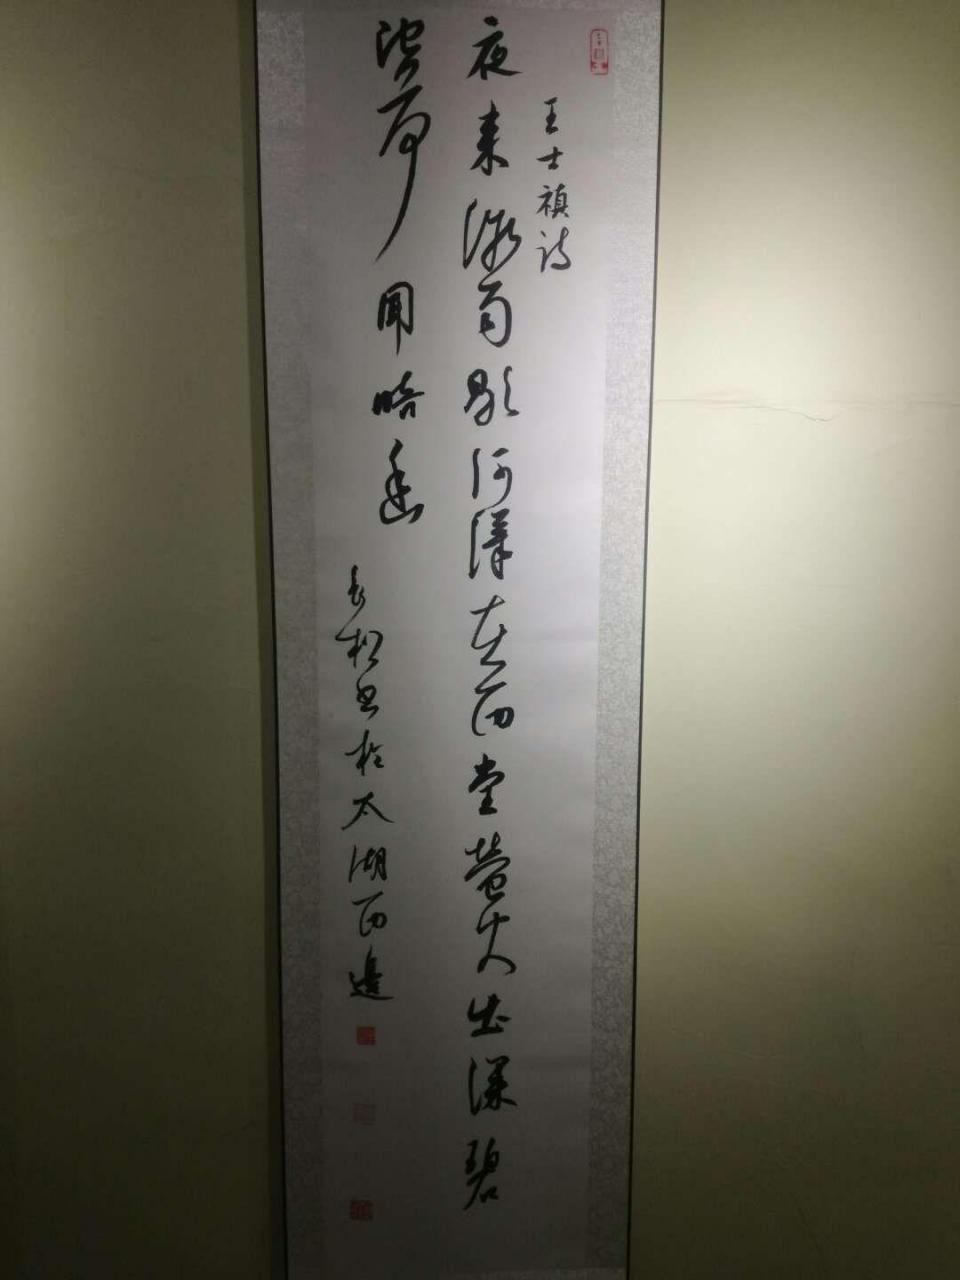 王士禛诗
夜来微雨歇河漢在西堂萤火出深碧
池荷闻暗香
长松书於太湖西邊